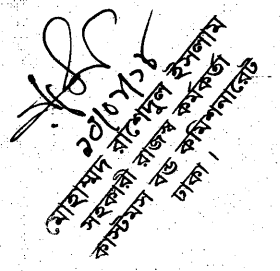 ১০/০৭/১৮
মোহাম্মদ রাশেদুল ইসলাম
সহকারী রাজস্ব কর্মকর্তা
কাস্টমস বন্ড কমিশনারেট
ঢাকা।